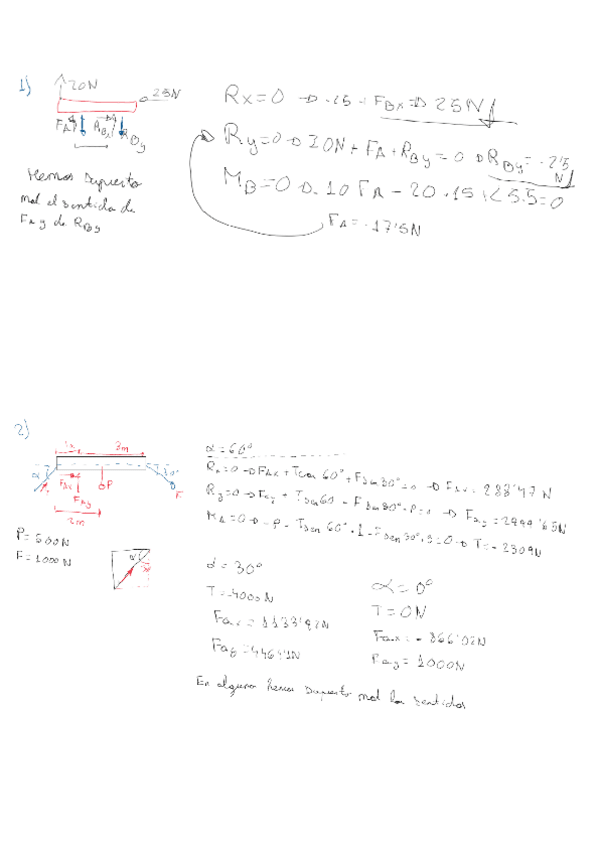 1)
20N
25N
FA
RBx
RBy
Hemos supuesto
mal el sentido de
FA y de RBy
Rx=0 → -25 + FBx → 25N
Ry=0 → 20N + FA + RBy = 0 → RBy = -2'5 N
MB=0 → -10 FA - 20 · 15 + 25·5=0
FA = -17'5N
2)
1m
3m
α
30°
FAx
P
F
FAy
2m
P = 500N
F = 1000N
α
α = 60°
Rx=0 → FAx + Tcos 60° + Fcos30°=0 → FAx = 288'47 N
Ry=0 → FAy + Tsen60 - Fsen30° - P=0 → FAy = 2999'65N
MA=0 → -P - Tsen 60° · 1 - Fsen30° · 3=0 → T = -2309N
α = 30°
T = -4000N
α = 0°
T = 0N
FAy = 1000N
En alguno hemos supuesto mal los sentidos